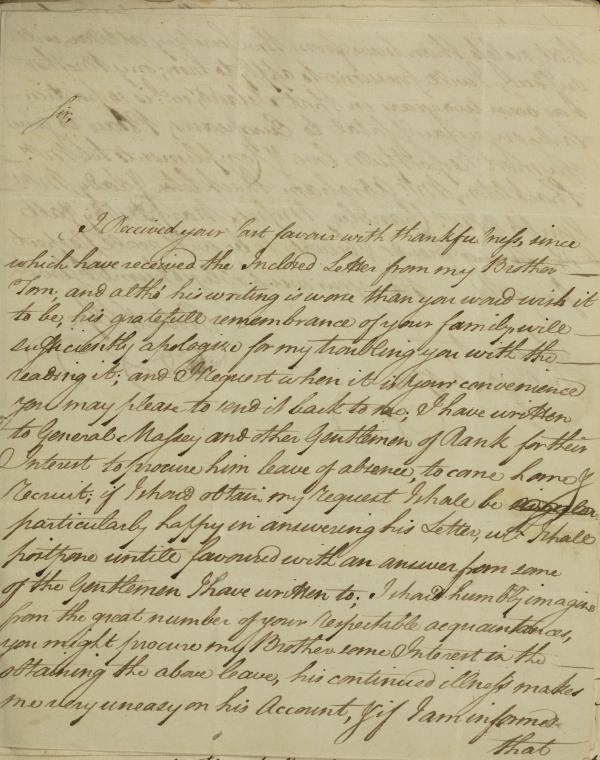 Sir,
I Received your last favour with thankfulness, since
which have received the Inclosed Letter from my Brother
Tom, and altho' his writing is worse than you would wish it
to be, his gratefull remembrance of your family, will
sufficiently apologize for my troubling you with the
reading it; and I Request when it is your convenience
you may please to send it back to me; I have written
to General Massey and other Gentlemen of Rank for their
Interest to procure him leave of absence, to come home &
Recruit; if I shoud obtain my request I shall be
particularly happy in answering his Letter, wch. I shall
postpone untill favoured with an answer from some
of the Gentlemen I have written to; I shoud humbly imagine
from the great number of your respectable acquaintances,
you might procure my Brother some Interest in the
obtaining the above leave, his continued illness makes
me very uneasy on his Account, & if I am informed
that